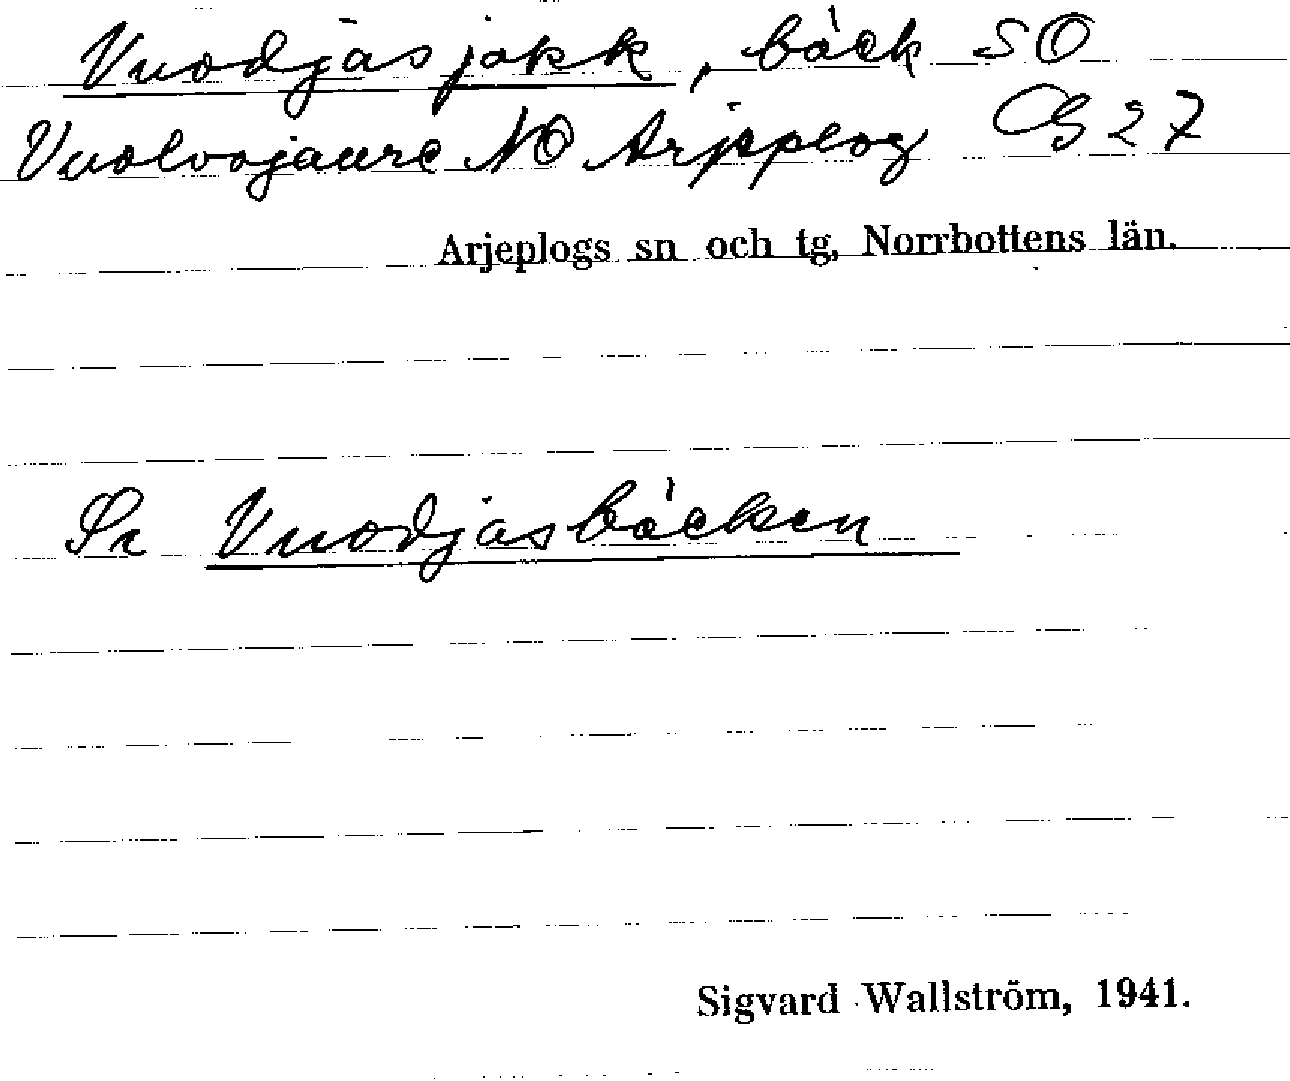 Vuodjasjåkk, bäck SO
Vuolvojaure NO Arjeplog G 27
Arjeplogs sn och tg, Norrbottens län.
Se Vuodjasbäcken
Sigvard Wallström, 1941.